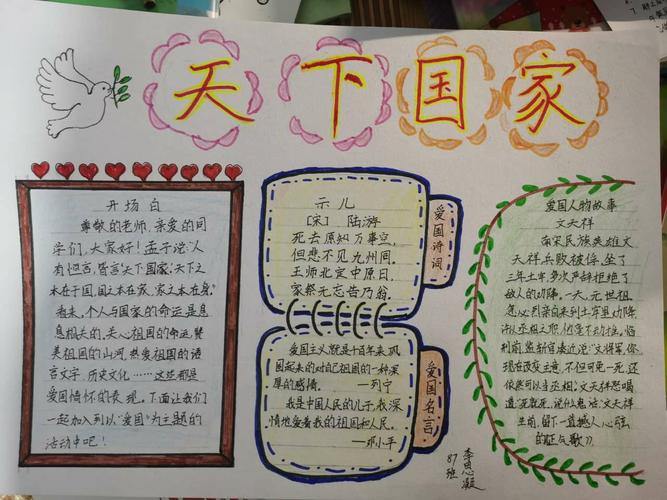 天下国家
开场白
尊敬的老师,亲爱的同
学们,大家好!孟子说:"人
有恒言,皆言'天下国家',天下之
本在于国,国之本在家,家之本在身。"
看来,个人与国家的命运是息
息相关的,关心祖国的命运,赞
美祖国的山河,热爱祖国的语
言文字、历史文化……这些都是
爱国情怀的表现。下面让我们
一起加入到以"爱国"为主题的
活动中吧!
示儿
[宋] 陆游
死去原知万事空,
但悲不见九州同。
王师北定中原日,
家祭无忘告乃翁。
爱国诗词
爱国主义就是千百年来巩
固起来的对自己祖国的一种深
厚的感情。 ——列宁
我是中国人民的儿子,我深
情地爱着我的祖国和人民。
——邓小平
爱国名言
爱国人物故事
文天祥
南宋民族英雄文
天祥兵败被俘,坐了
三年土牢,多次严辞拒绝了
敌人的劝降。一天,元世祖
忽必烈亲自来到土牢里劝降
许以丞相之职,他毫不动摇。临
刑前,监斩官凑近说:"文将军,你
现在改变主意,不但可免一死,还
依然可以当丞相。"文天祥怒喝
道:"死就死,说什么鬼话。"文天祥
生前,留下一首撼人心弦
的《正气歌》。
87
班
李思凝